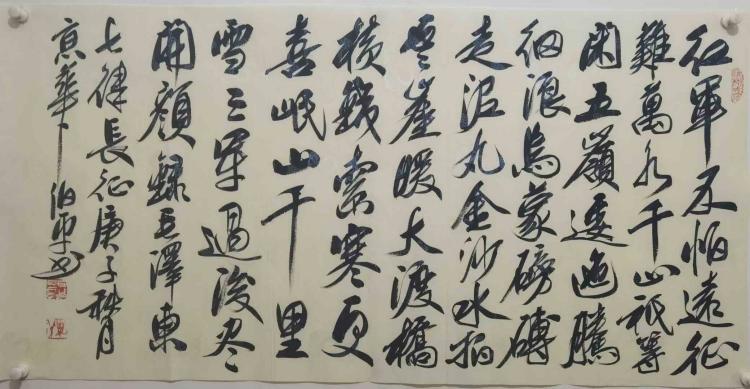 紅軍不怕遠征
難萬水千山祇等
閑五嶺逶迤騰
細浪烏蒙磅礴
走泥丸金沙水拍
雲崖暖大渡橋
橫鐵索寒更
喜岷山千里
雪三軍過後盡
開顏錄毛澤東
七律長征庚子秋月
京華伯軍书